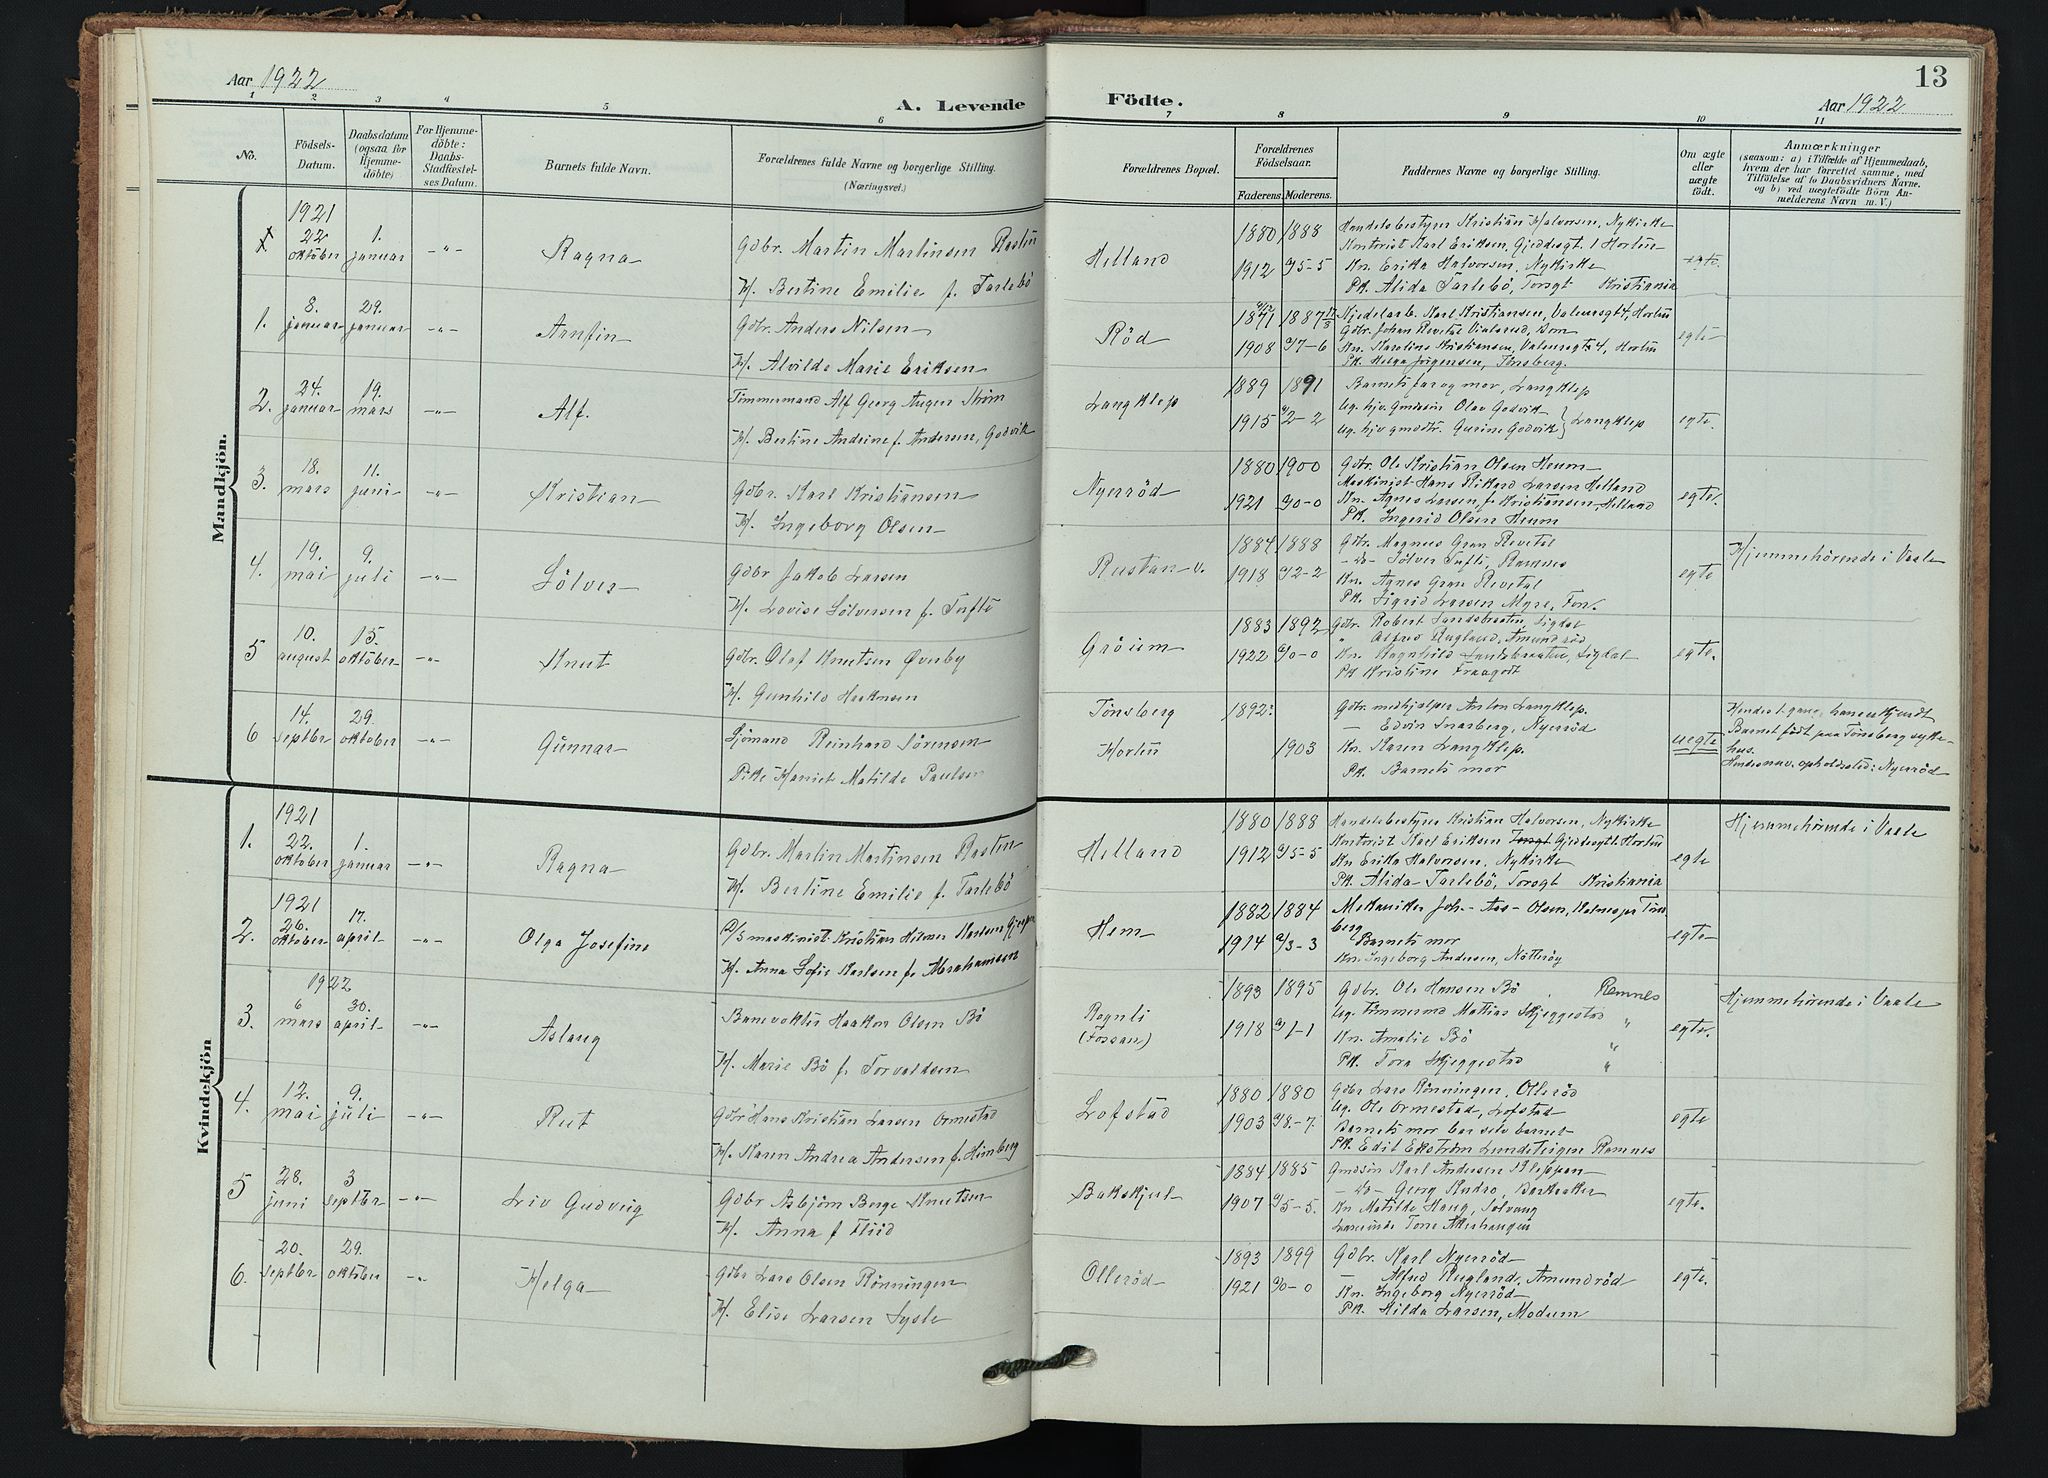 Aar 1922
A. Levende Födte.
Aar 1922
13
1 2 3 4 5 6 7 8 9 10 11
No.
Födsels-Datum.
Daabsdatum (ogsaa for Hjemmedöbte)
For Hjemmedöbte: Daabs-Stadfæstelses Datum.
Barnets fulde Navn.
Forældrenes fulde Navne og borgerlige Stilling. (Næringsvei.)
Forældrenes Bopæl.
Forældrenes Födselsaar. Faderens. Moderens.
Faddernes Navne og borgerlige Stilling.
Om ægte eller uægte födt.
Anmærkninger
(saasom: a) i Tilfælde af Hjemmedaab, hvem der har forrettet samme, med Tilföielse af to Daabsvidners Navne. og b) ved uægtefödte Börn Anmelderens Navn m. V.)
Mandkjön.
1921
1 22 oktober 1. januar -"- Ragna
Gdbr. Martin Martinsen Rastin
H. Bertine Emilie f. Tarlebö
Helland 1880 1888
1912 5-5
Handelsbestyrer Kristian Halvorsen, Nykirke
Kontorist Karl Eriksen, Gjeddesgt. 1 Horten
Kn. Erika Halvorsen, Nykirke
Pk. Alida Tarlebö, Torsgt Kristiania
egte
1. 8. januar 29. januar -"- Arnfin
Gdbr. Anders Nilsen
H. Alvilde Marie Eriksen
Röd 1871 1887
1908 7-6
Kjedelarb. Karl Kristiansen, Valeursgt 4, Horten
Gdbr. Johan Revetal
Kn. Karoline Kristiansen, Valeursgt 4, Horten
Pk. Helga Jörgensen, Tönsberg.
egte
2. 24. januar 19. mars -"- Alf.
Tömmermand Alf Georg August Ström
H. Bertine Andrine f. Andersen, Godvik
Langklep 1889 1891
1915 2-2
Barnets far og mor, Langklep
Ug. hjv. gmdssön Olav Godvik
Ug. hjv gmdtr. Gurine Godvik } Langklep
egte.
3. 18. mars 11. juni -"- Kristian
Gdbr. Karl Kristiansen
H. Ingeborg Olsen
Nyerröd 1880 1900
1921 0-0
Gdbr. Ole Kristian Olsen Heum
Maskinist Hans Rikard Larsen Helland
Kn. Agnes Larsen f. Kristiansen, Helland
Pk. Ingerid Olsen Heum
egte.
4. 19. mai 9. juli -"- Sölver
Gdbr Jakob Larsen
H. Lovise Sölversen f. Tufte
Rustan v. 1884 1888
1918 2-2
Gdbr. Magnus Gran Revetal
-do- Sölver Tufte, Ramnes
Kn. Agnes Gran Revetal
Pk. Sigrid Larsen Myre, Ton.
egte
Hjemmehörende i Vaale
5 10. august 15. oktober -"- Knut
Gdbr. Olaf Knutsen Øverby
H. Gunhild Haaknsen
Gröium 1883 1892
1922 0-0
Gdbr. Robert Landsbraaten, Sigdal
" Alfred Rugland, Amundröd
Kn. Ragnhild Landsbraaten, Sigdal
Pk Kristine Fraagott
egte.
6 14. septbr 29. oktober -"- Gunnar
Sjömand Reinhard Sörensen
Pike Harriet Matilde Paulsen
Tönsberg 1892
Horten 1903
Gdbr. medhjælper Anton Langklep.
- Edvin Snarberg, Nyerröd
Kn. Karen Langklep.
Pk. Barnets mor
uegte
Barnet födt paa Tönsberg sykehus.
opholdssted: Nyerröd
Kvindekjön
1921
1. 22. oktober 1. januar -"- Ragna
Gdbr. Martin Martinsen Rastin
H. Bertine Emilie f. Tarlebö
Helland 1880 1888
1912 5-5
Handelsbestyrer Kristian Halvorsen, Nykirke
Kontorist Karl Eriksen Torsgt Gjeddesgt 1. Horten
Kn Erika Halvorsen, Nykirke
Pk. Alida Tarlebö, Torsgt Kristiania
egte
Hjemmehörende i Vaale
1921
2. 26. oktober 17. april -"- Olga Josefine
maskinist Kristian Hilmar Karlsen
H. Anna Sofie Karlsen f. Abrahamsen
Hem 1882 1884
1914 3-3
Mekaniker Joh. Aas-Olsen, Kalnes pr Tönsberg
Barnets mor
Kn. Ingeborg Andersen, Nötteröy
egte
1922
3. 6 mars 30. april -"- Aslaug
Banevokter Haakon Olsen Bö
H. Marie Bö f. Torvaldsen
Rognli
(Fossan) 1893 1895
1918 1-1
Gdbr. Ole Hansen Bö, Ramnes
Ug. tömmermd Mattias Skjeggestad "
Kn. Amalie Bö "
Pk. Tora Skjeggestad "
egte.
Hjemmehörende i Vaale
4. 12. mai 9. juli -"- Rut
Gdbr Hans Kristian Larsen Ormestad
H. Karen Andrea Andersen f. Himberg
Lofstad 1880 1880
1903 8-7
Gdbr Lars Rönningen, Olleröd
Ug. Ole Ormestad, Lofstad
Barnets mor bar selv barnet
Pk. Edit Ekström Lundeteigen Ramnes
egte
5 28. juni 3 septbr -"- Liv Gudveig
Gdbr Asbjörn Berge Knutsen
H. Anna f Flöd
Bakskjul 1884 1885
1907 5-5.
Gmdssön Karl Andersen Kleppan
-do- Georg Rudro, Borkaaker
Kn Matilde Haug, Solvang
Lærerinde Tone Akerhaugen
egte.
6. 20. septbr 29. oktober -"- Helga
Gdbr Lars Olsen Rönningen
H. Elise Larsen Sysle
Olleröd 1893 1899
1921 0-0
Gdbr. Karl Nyerröd
- Alfred Rugland, Amundröd
Kn. Ingeborg Nyerröd
Pk. Hilda Larsen, Modum
egte.